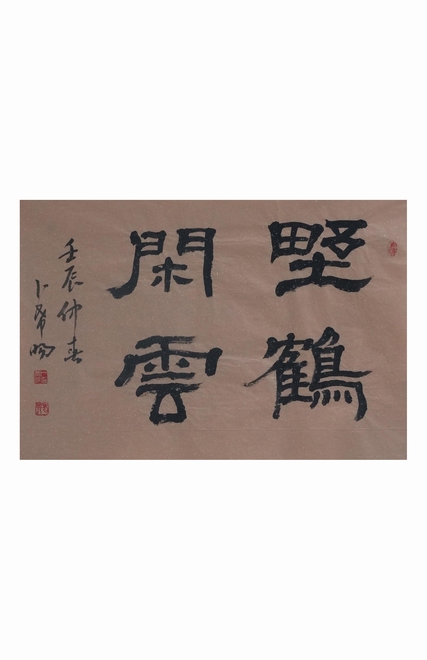 野鶴
閑雲
壬辰仲春
卜希暘